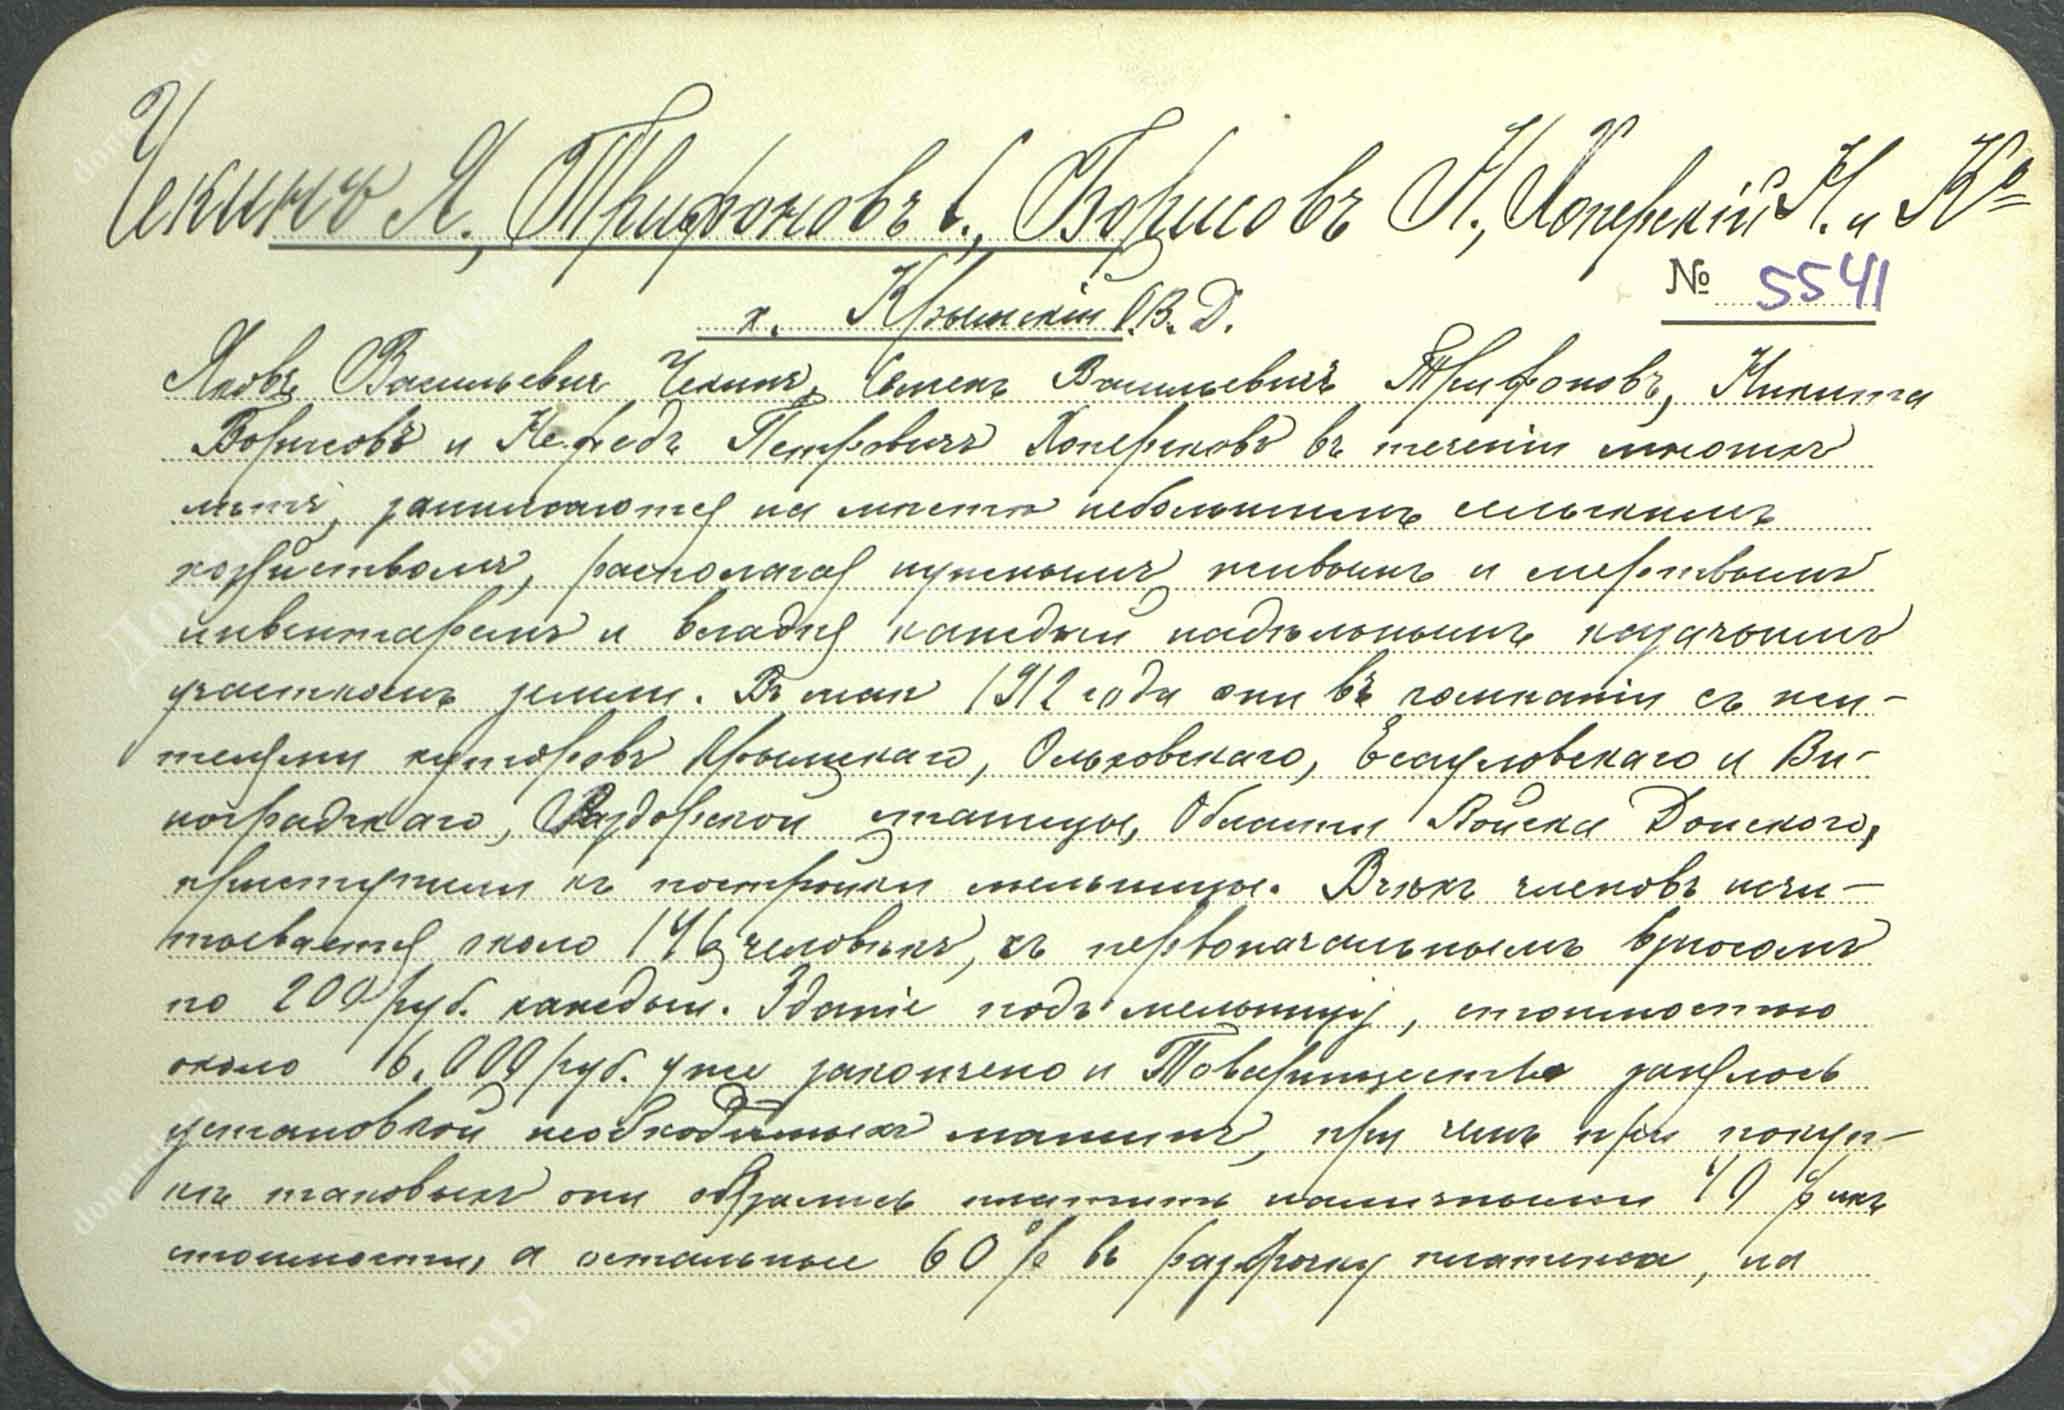 Чекинъ Я., Трифоновъ С., Борисовъ Н., Хоперскій Н. и Ко
№ 5541
х. Крымскій О.В.Д.
Яковъ Васильевич Чекинъ, Семенъ Васильевичъ Трифоновъ, Никита
Борисовъ и Нефедъ Петровичъ Хоперсковъ въ теченіи многихъ
лѣтъ, занимаются на мѣстѣ небольшимъ сельскимъ
хозяйствомъ, располагая нужнымъ живымъ и мертвымъ
инвентаремъ и владѣя каждый надѣльнымъ казачьимъ
участкомъ земли. Въ маѣ 1912 года они въ компаніи съ жи-
телями хуторовъ Крымскаго, Ольховскаго, Есауловскаго и Ви-
ноградскаго, Раздорской станицы, Области Войска Донского,
приступили къ постройки мельницы. Всѣхъ членовъ насчи-
тывается около 146 человѣкъ, съ первоначальнымъ взносомъ
по 200 руб. каждый. Зданіе подъ мельницу, стоимостью
около 16.000 руб. уже закончено и Товарищество занялось
установкой необходимыхъ машинъ, при чемъ при покуп-
кѣ таковыхъ они обязались платить наличными 40% ихъ
стоимости, а остальные 60% въ разсрочку платежа, на